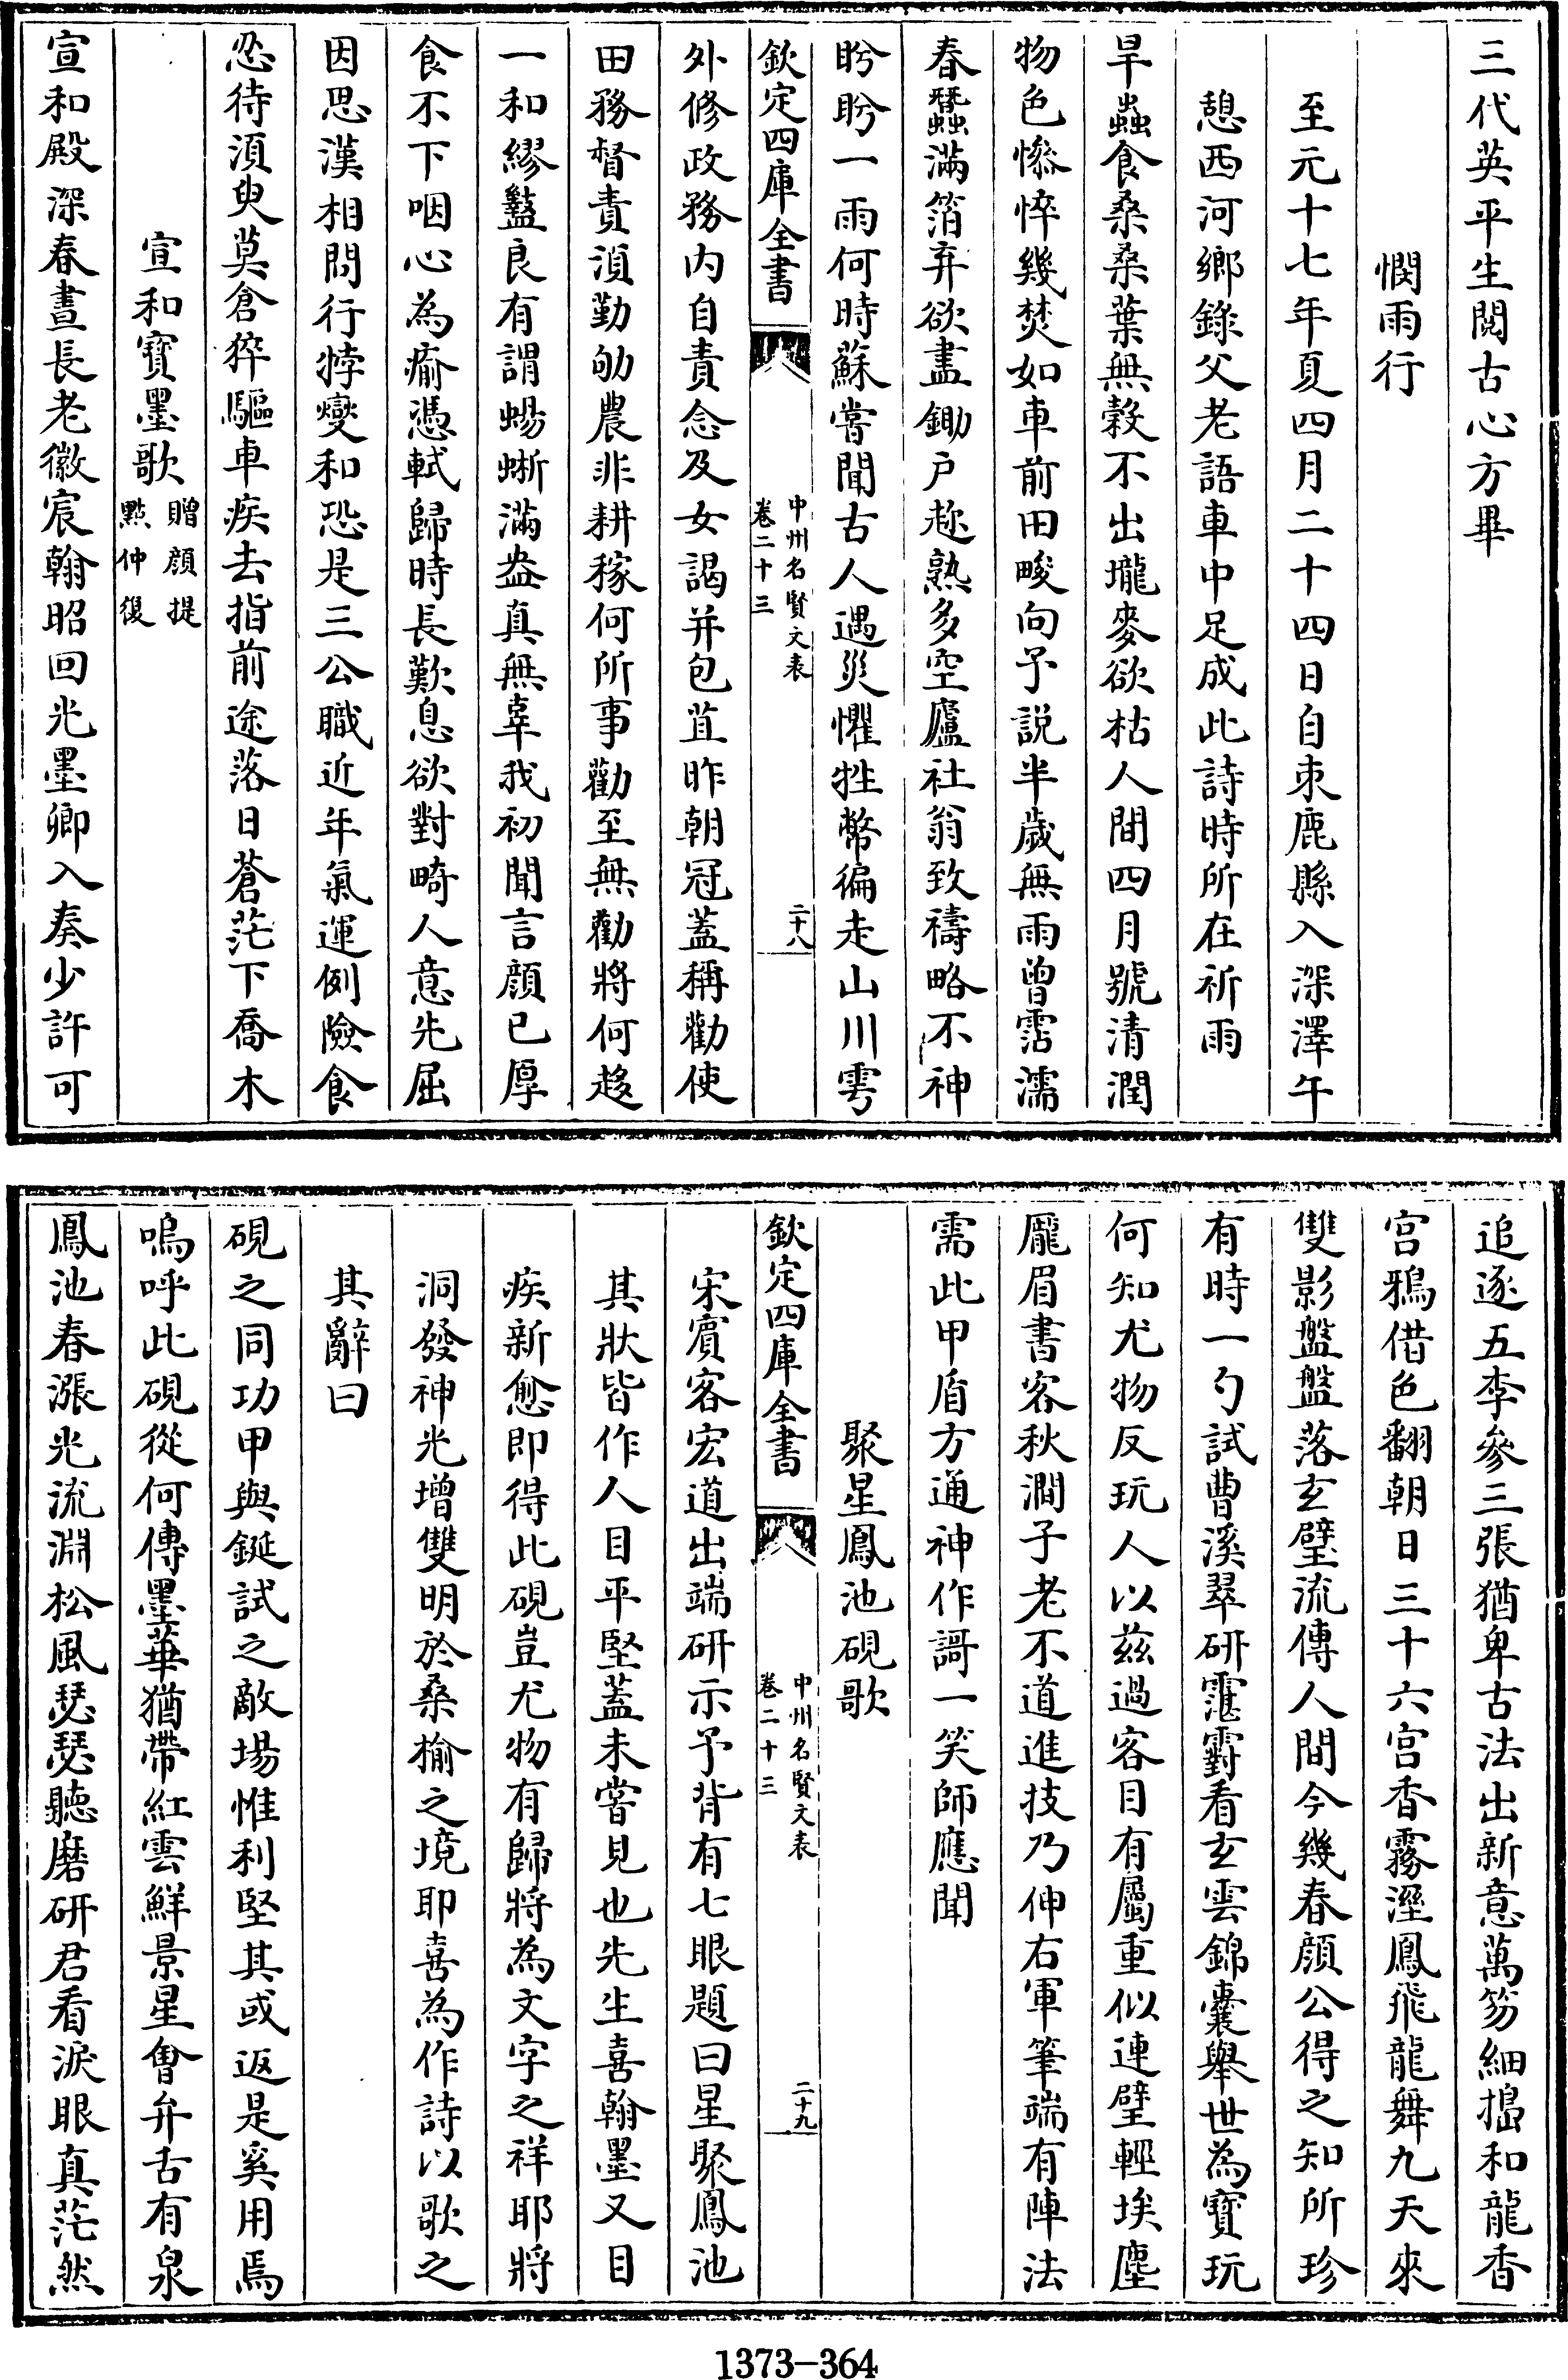 三代英平生閱古心方畢
憫雨行
至元十七年夏四月二十四日自束鹿縣入深澤午
憩西河鄉錄父老語車中足成此詩時所在祈雨
旱蟲食桑桑葉無穀不出壠麥欲枯人間四月號清潤
物色慘悴幾焚如車前田畯向予説半歲無雨曾霑濡
春蠶滿箔弃欲盡鋤户趂熟多空廬社翁致禱略不神
盻盻一雨何時蘇嘗聞古人遇災懼牲幣徧走山川雩
欽定四庫全書
中州名賢文表
卷二十三
二十八
外修政務内自責念及女謁并包苴昨朝冠蓋稱勸使
田務督責湏勤劬農非耕稼何所事勸至無勸將何趍
一和繆盭良有謂蜴蜥滿盎真無辜我初聞言顔已厚
食不下咽心為瘉憑軾歸時長歎息欲對畸人意先屈
因思漢相問行悖燮和恐是三公職近年氣運例險食
忍待湏臾莫倉猝驅車疾去指前途落日蒼茫下喬木
宣和寳墨歌
贈顔提
㸃仲復
宣和殿深春晝長老徽宸翰昭回光墨卿入奏少許可
追逐五李參三張猶卑古法出新意萬笏細搗和龍香
宫鴉借色翻朝日三十六宫香霧溼鳳飛龍舞九天來
雙影盤盤落玄璧流傳人間今幾春顔公得之知所珍
有時一勺試曹溪翠研霮䨴看玄雲錦囊舉世為寳玩
何知尤物反玩人以兹過客目有屬重似連璧輕埃塵
龎眉書客秋澗子老不道進技乃伸右軍筆端有陣法
需此甲盾方通神作謌一笑師應聞
聚星鳳池硯歌
欽定四庫全書
中州名賢文表
卷二十三
二十九
宋賔客宏道出端研示予背有七眼題曰星聚鳳池
其狀皆作人目平堅蓋未嘗見也先生喜翰墨又目
疾新愈即得此硯豈尤物有歸將為文字之祥耶將
洞發神光增雙明於桑榆之境耶喜為作詩以歌之
其辭曰
硯之同功甲與鋋試之敵場惟利堅其或返是奚用焉
嗚呼此硯從何傳墨華猶帶紅雲鮮景星會弁古有泉
鳳池春漲光流淵松風瑟瑟聽磨研君看淚眼真茫然
1373-364